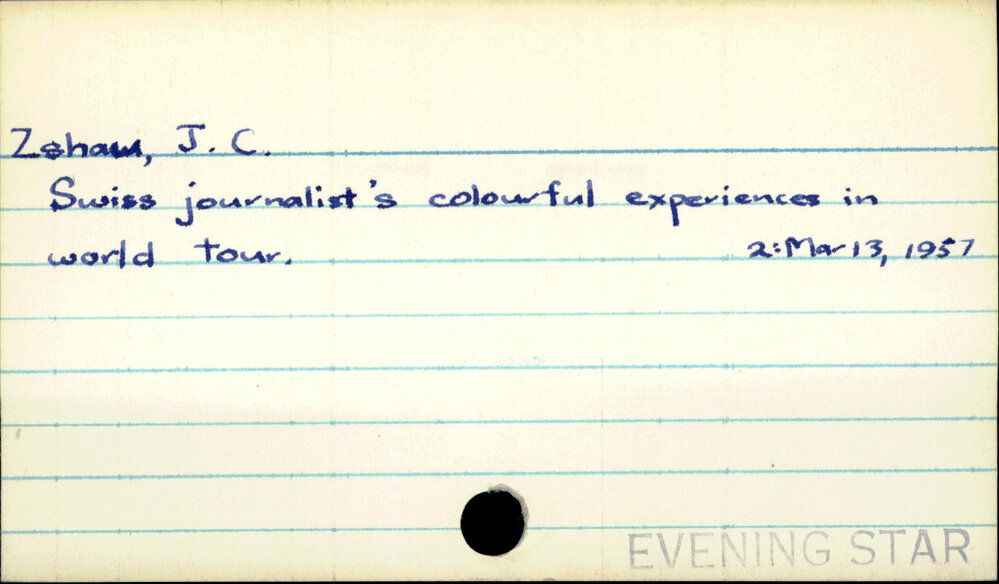 Zshaw, J. C.
Swiss journalist's colourful experiences in
world tour. 2:Mar 13, 1957
EVENING STAR